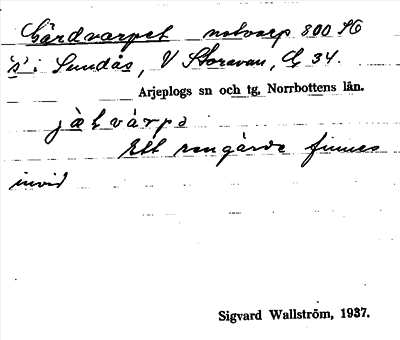 Gårdvarpet notvarp 800 M
'n' i Sundås, V Storavan, G 34.
Arjeplogs sn och tg, Norrbottens län.
Ett rengärde finnes
invid
Sigvard Wallström, 1937.